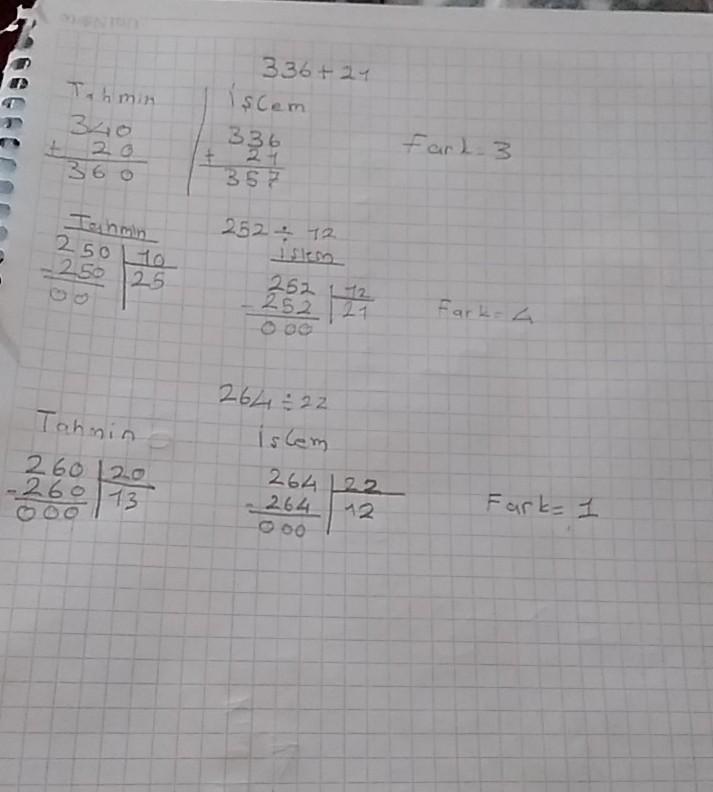 336+21
Tahmin
340
+ 20
360
İşlem
336
+ 21
357
Fark=3
252 ÷ 12
Tahmin
250 10
-250 25
00
işlem
252 12
-252 21
000
Fark=4
264 ÷ 22
Tahmin
260 20
-260 13
000
işlem
264 22
-264 12
000
Fark=1